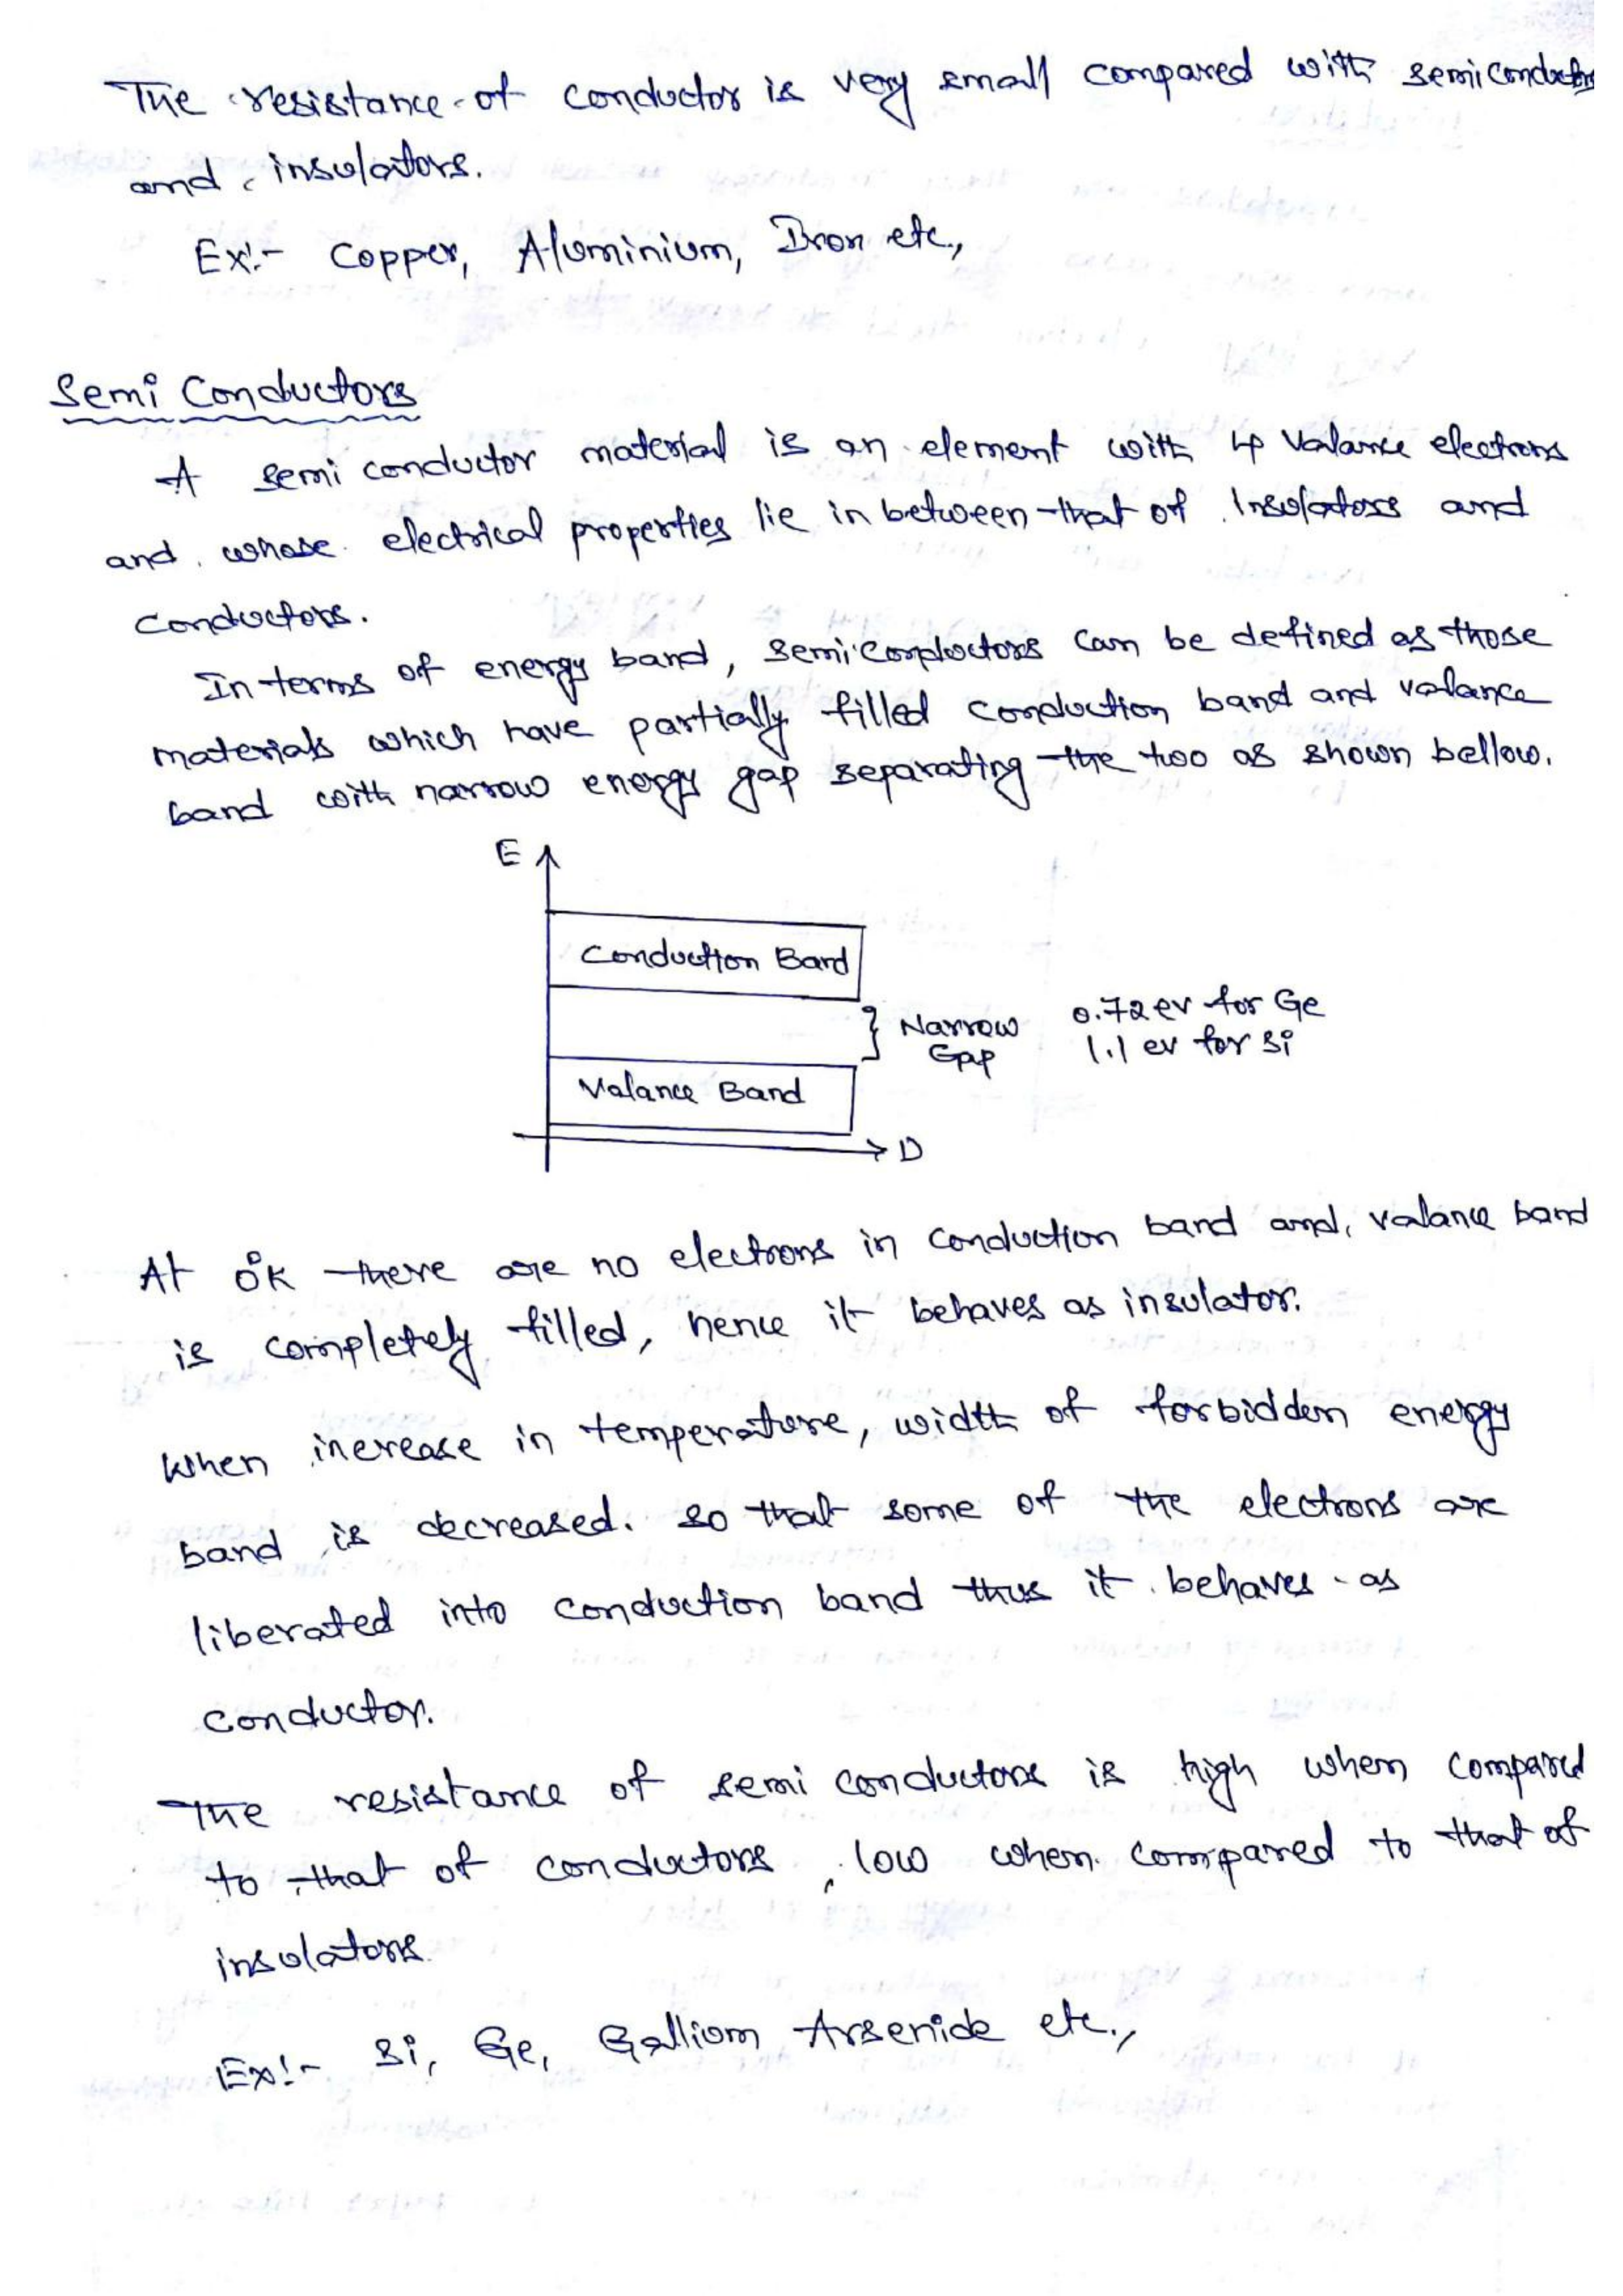 The resistance of conductor is very small compared with semiconductors
and insulators.
Ex:- Copper, Aluminium, Iron etc.,
Semi Conductors
A semi conductor material is an element with 4 Valance electrons
and whose electrical properties lie in between that of Insulators and
conductors.
In terms of energy band, semiconductors can be defined as those
materials which have partially filled conduction band and valance
band with narrow energy gap separating the two as shown bellow.
E
Conduction Band
Narrow 0.72 ev for Ge
Gap 1.1 ev for Si
Valance Band
D
At 0°K there are no electrons in conduction band and, valance band
is completely filled, hence it behaves as insulator.
When increase in temperature, width of forbidden energy
band is decreased. so that some of the electrons are
liberated into conduction band thus it behaves as
conductor.
The resistance of semi conductors is high when compared
to that of conductors, low when compared to that of
insulators.
Ex:- Si, Ge, Gallium Arsenide etc.,